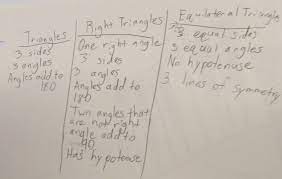 Triangles
3 sides
3 angles
Angles add to
180
Right Triangles
One right angle
3 sides
3 angles
Angles add to
180
Two angles that
are not right
angle add to
90
Has hypotenuse
Equilateral Triangles
3 equal sides
3 equal angles
No hypotenuse
3 lines of symmetry